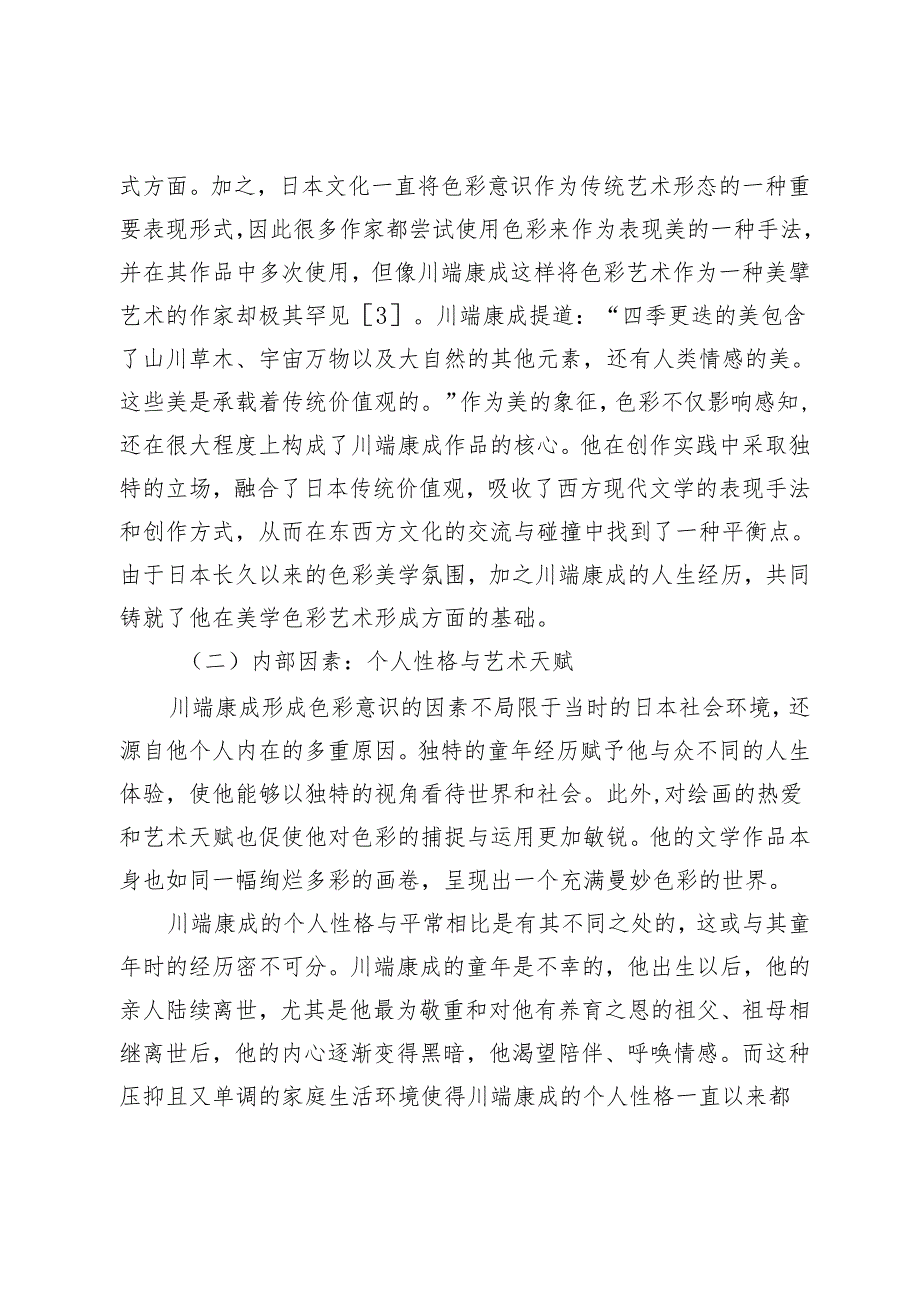 式方面。加之，日本文化一直将色彩意识作为传统艺术形态的一种重
要表现形式，因此很多作家都尝试使用色彩来作为表现美的一种手法，
并在其作品中多次使用，但像川端康成这样将色彩艺术作为一种美擘
艺术的作家却极其罕见［3］。川端康成提道：“四季更迭的美包含
了山川草木、宇宙万物以及大自然的其他元素，还有人类情感的美。
这些美是承载着传统价值观的。”作为美的象征，色彩不仅影响感知，
还在很大程度上构成了川端康成作品的核心。他在创作实践中采取独
特的立场，融合了日本传统价值观，吸收了西方现代文学的表现手法
和创作方式，从而在东西方文化的交流与碰撞中找到了一种平衡点。
由于日本长久以来的色彩美学氛围，加之川端康成的人生经历，共同
铸就了他在美学色彩艺术形成方面的基础。
（二）内部因素：个人性格与艺术天赋
川端康成形成色彩意识的因素不局限于当时的日本社会环境，还
源自他个人内在的多重原因。独特的童年经历赋予他与众不同的人生
体验，使他能够以独特的视角看待世界和社会。此外，对绘画的热爱
和艺术天赋也促使他对色彩的捕捉与运用更加敏锐。他的文学作品本
身也如同一幅绚烂多彩的画卷，呈现出一个充满曼妙色彩的世界。
川端康成的个人性格与平常相比是有其不同之处的，这或与其童
年时的经历密不可分。川端康成的童年是不幸的，他出生以后，他的
亲人陆续离世，尤其是他最为敬重和对他有养育之恩的祖父、祖母相
继离世后，他的内心逐渐变得黑暗，他渴望陪伴、呼唤情感。而这种
压抑且又单调的家庭生活环境使得川端康成的个人性格一直以来都